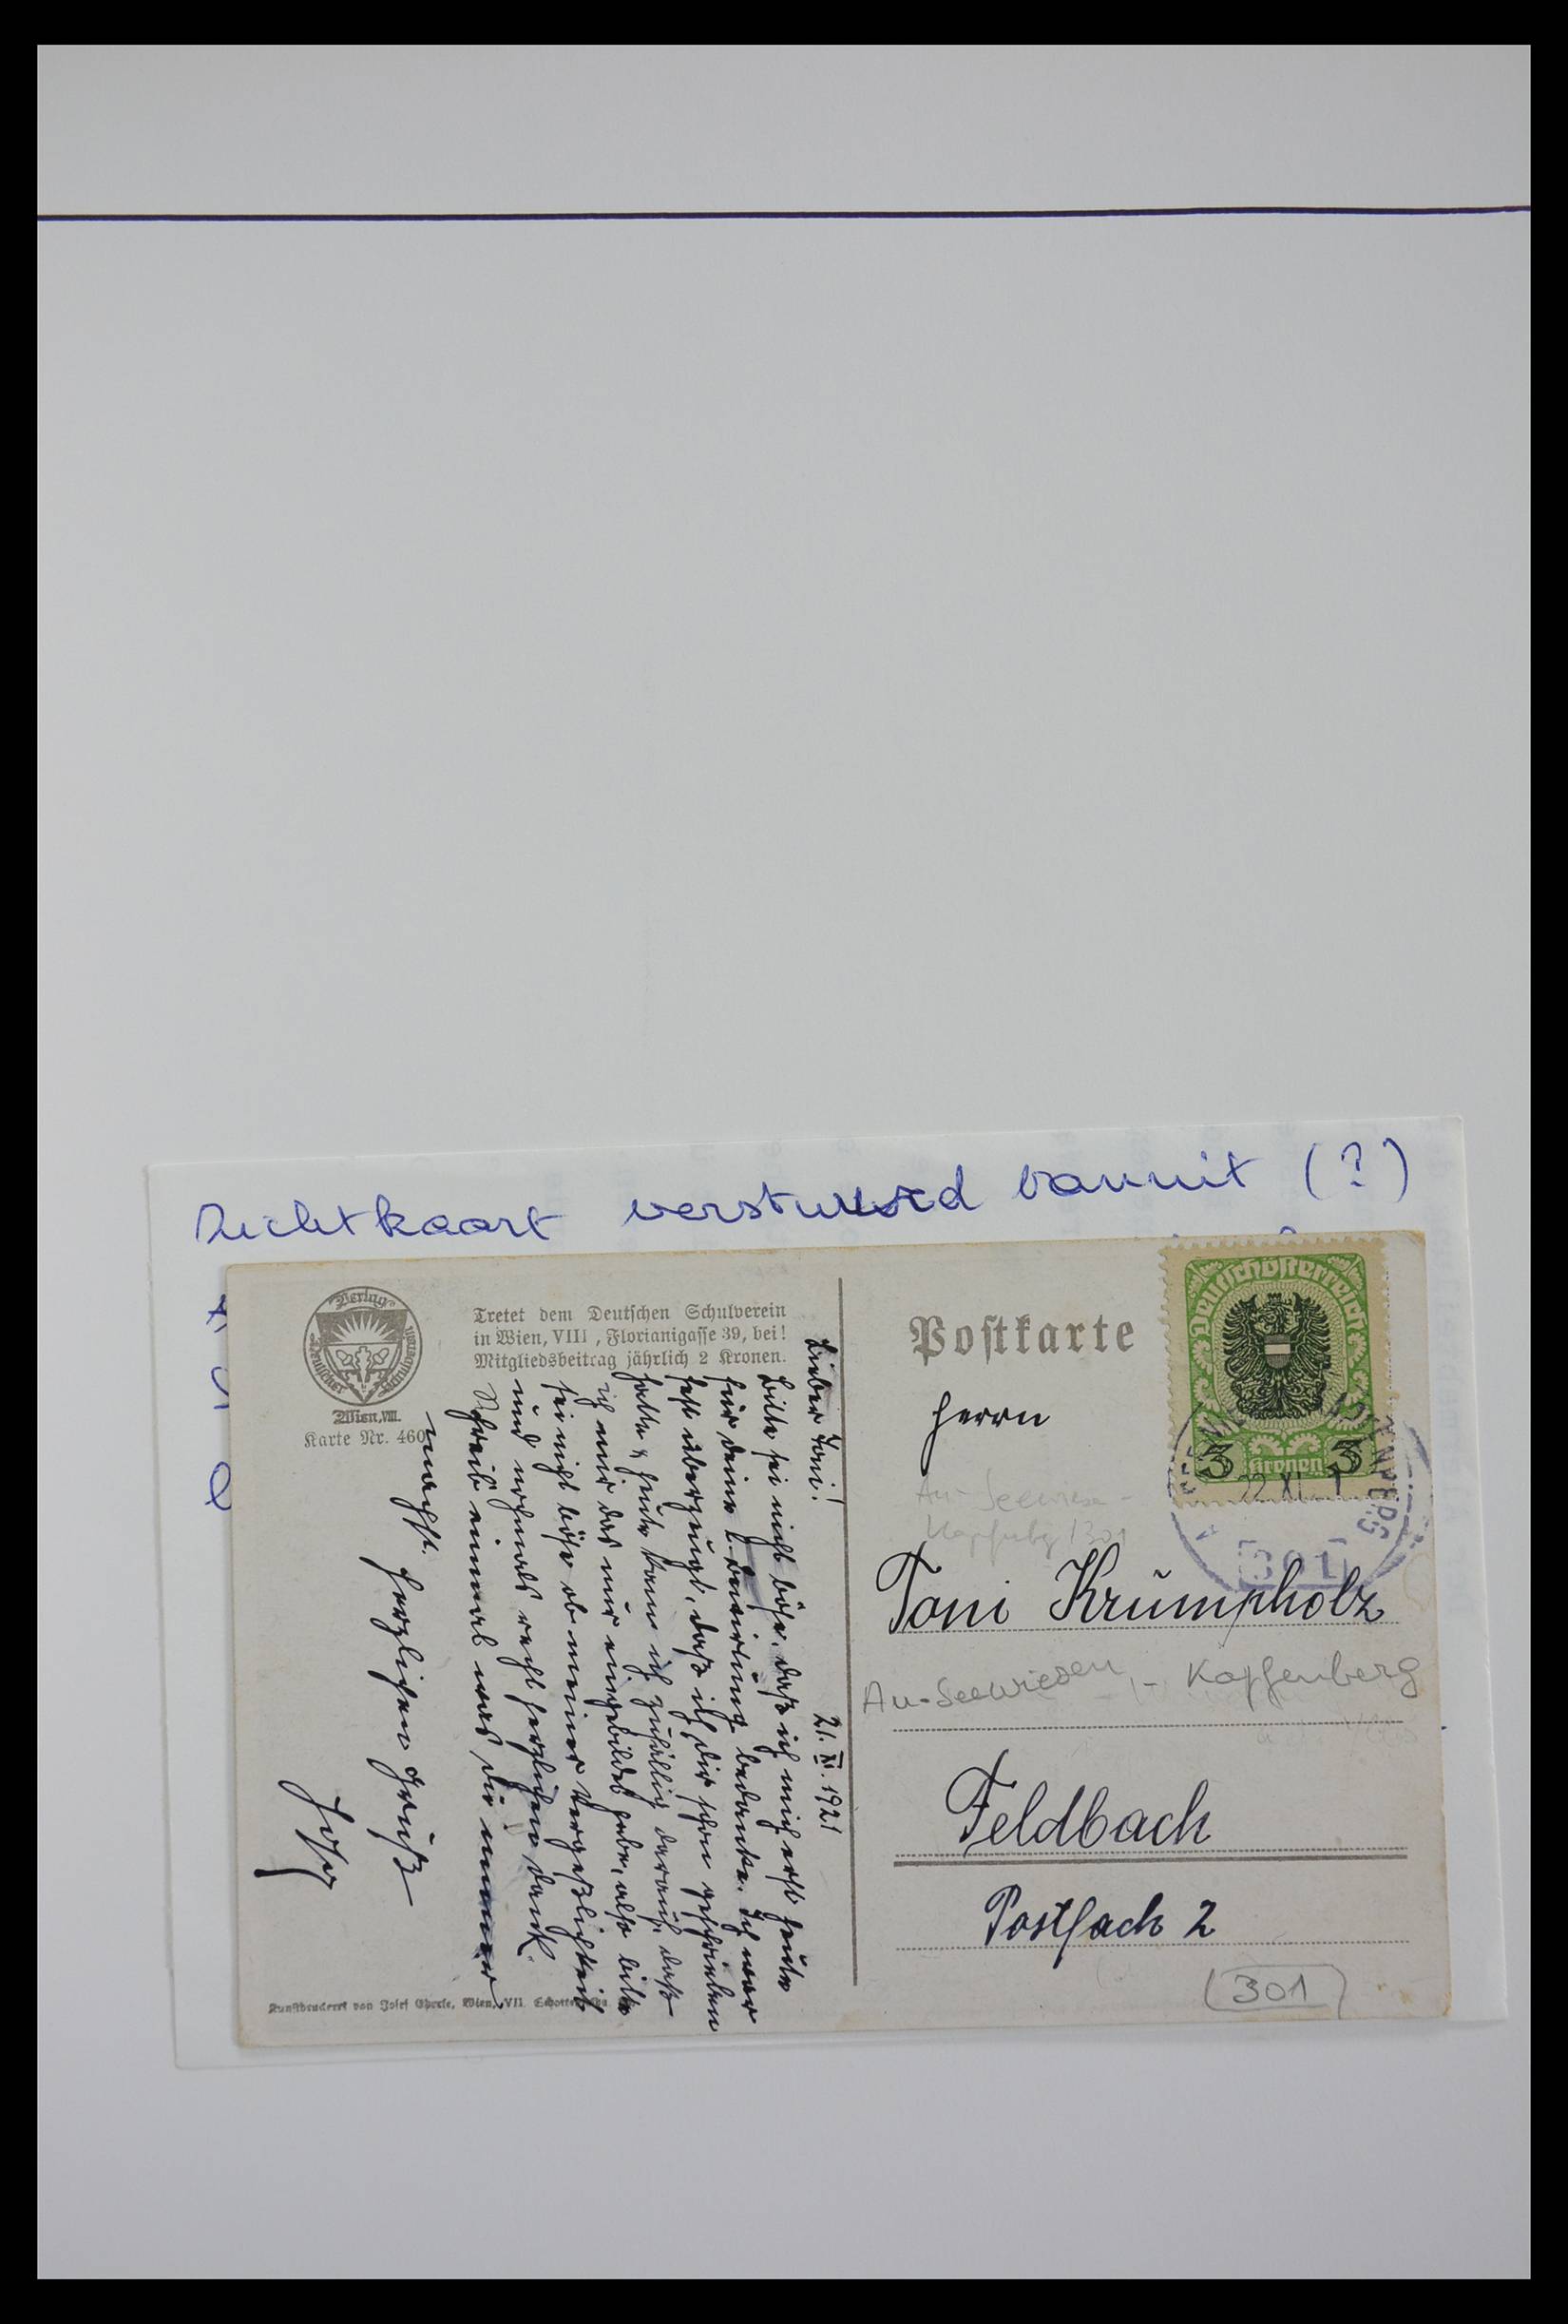 Zichtkaart verstuurd vanuit (?)
Verlag
Deutscher Schulverein
Wien, VIII.
Karte Nr. 460
Tretet dem Deutschen Schulverein
in Wien, VIII, Florianigasse 39, bei!
Mitgliedsbeitrag jährlich 2 Kronen.
21. XI. 1921
Lieber Toni!
Bitte sei nicht böse, daß ich mich erst heute
für deine l. Bewirtung bedanke. Ich war
fest überzeugt, daß ich dir schon geschrieben
hatte & heute kam ich zufällig darauf, daß
ich mir das nur eingebildet habe, also bitte
sei nicht böse ob meiner Vergeßlichkeit
und nochmals recht herzlichen Dank.
Schreib einmal was Du immer
machst.
Herzlichen Gruß
Kunstdruckerei von Josef Eberle, Wien, VII.
Postkarte
Deutschösterreich
3 Kronen 3
22 XI
301
Herrn
Au-Seewiesen -
Kapfenbg 301
Toni Krumpholz
Au-Seewiesen - Kapfenberg
Feldbach
Postfach 2
301